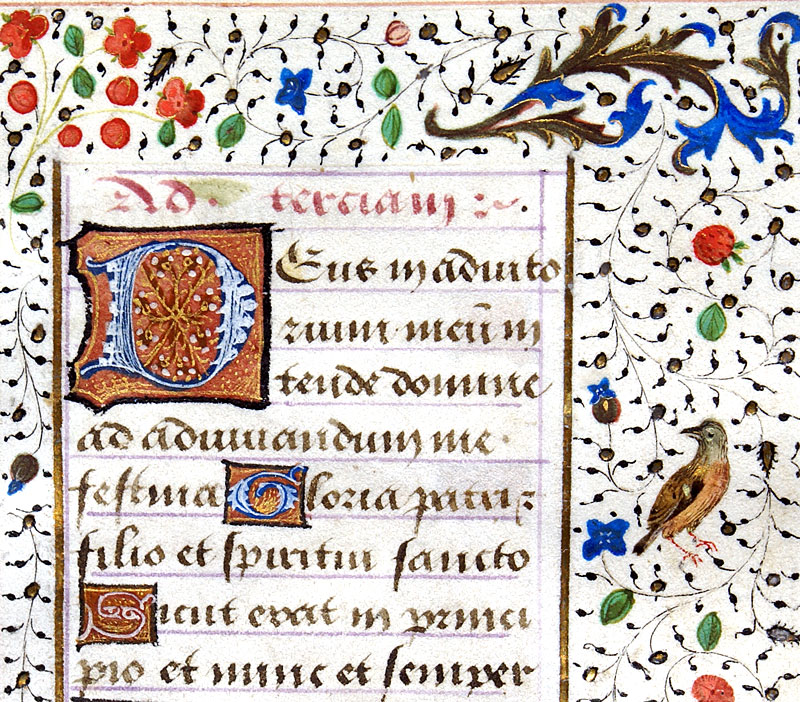 Ad terciam
Deus in adiuto
rium meū in
tende domine
ad adiuuandum me
festina Gloria patri
filio et spiritui sancto
Sicut erat in princi
pio et nunc et semper